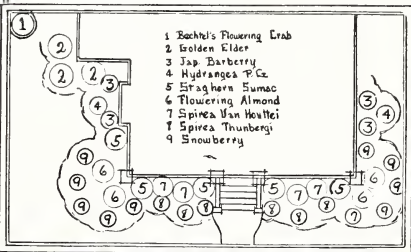 1 Bechtel's Flowering Crab
2 Golden Elder
3 Jap. Barberry
4 Hydrangea P. G.
5 Staghern Sumac
6 Flowering Almond
7 Spirea Van Houttei
8 Spirea Thunbergi
9 Snowberry
1
2
2 2 3
4 3
5
9 6
9 6 9
9 9
5 7 7 5
8 8 8
5 7 7 5
8 8 8
3 4
3
9
6 9
6 9
9 7 9